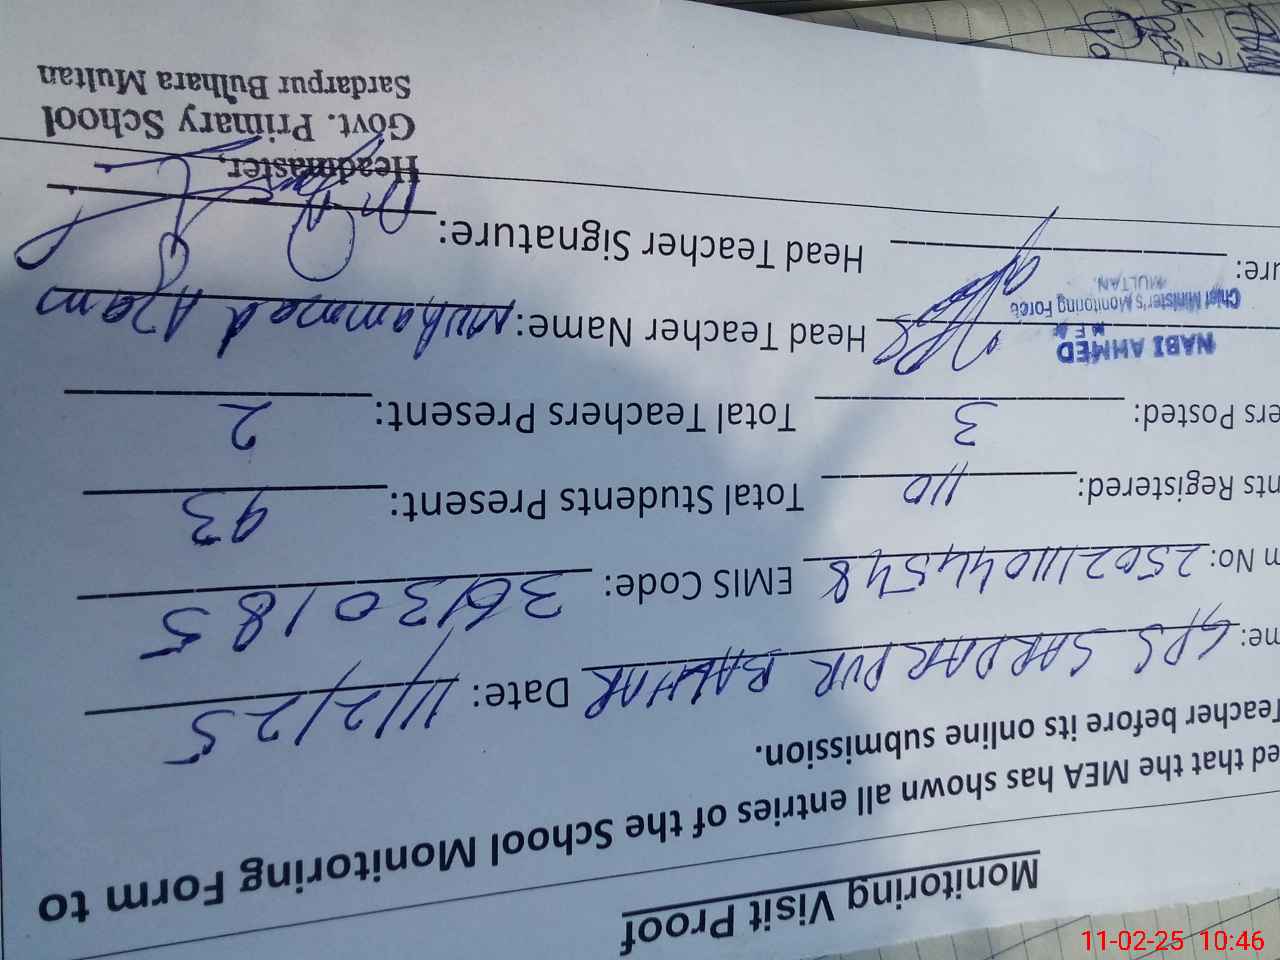 Monitoring Visit Proof
ed that the MEA has shown all entries of the School Monitoring Form to
Teacher before its online submission.
me: GPS SARDARPUR BALHAR Date: 11/2/25
m No: 2502111044548 EMIS Code: 36130185
nts Registered: 110 Total Students Present: 93
ers Posted: 3 Total Teachers Present: 2
NABI AHMED
MEA
Chief Minister's Monitoring Force
MULTAN.
Head Teacher Name: Muhammad Azam
ure: Head Teacher Signature:
Headmaster,
Govt. Primary School
Sardarpur Bulhara Multan
11-02-25 10:46